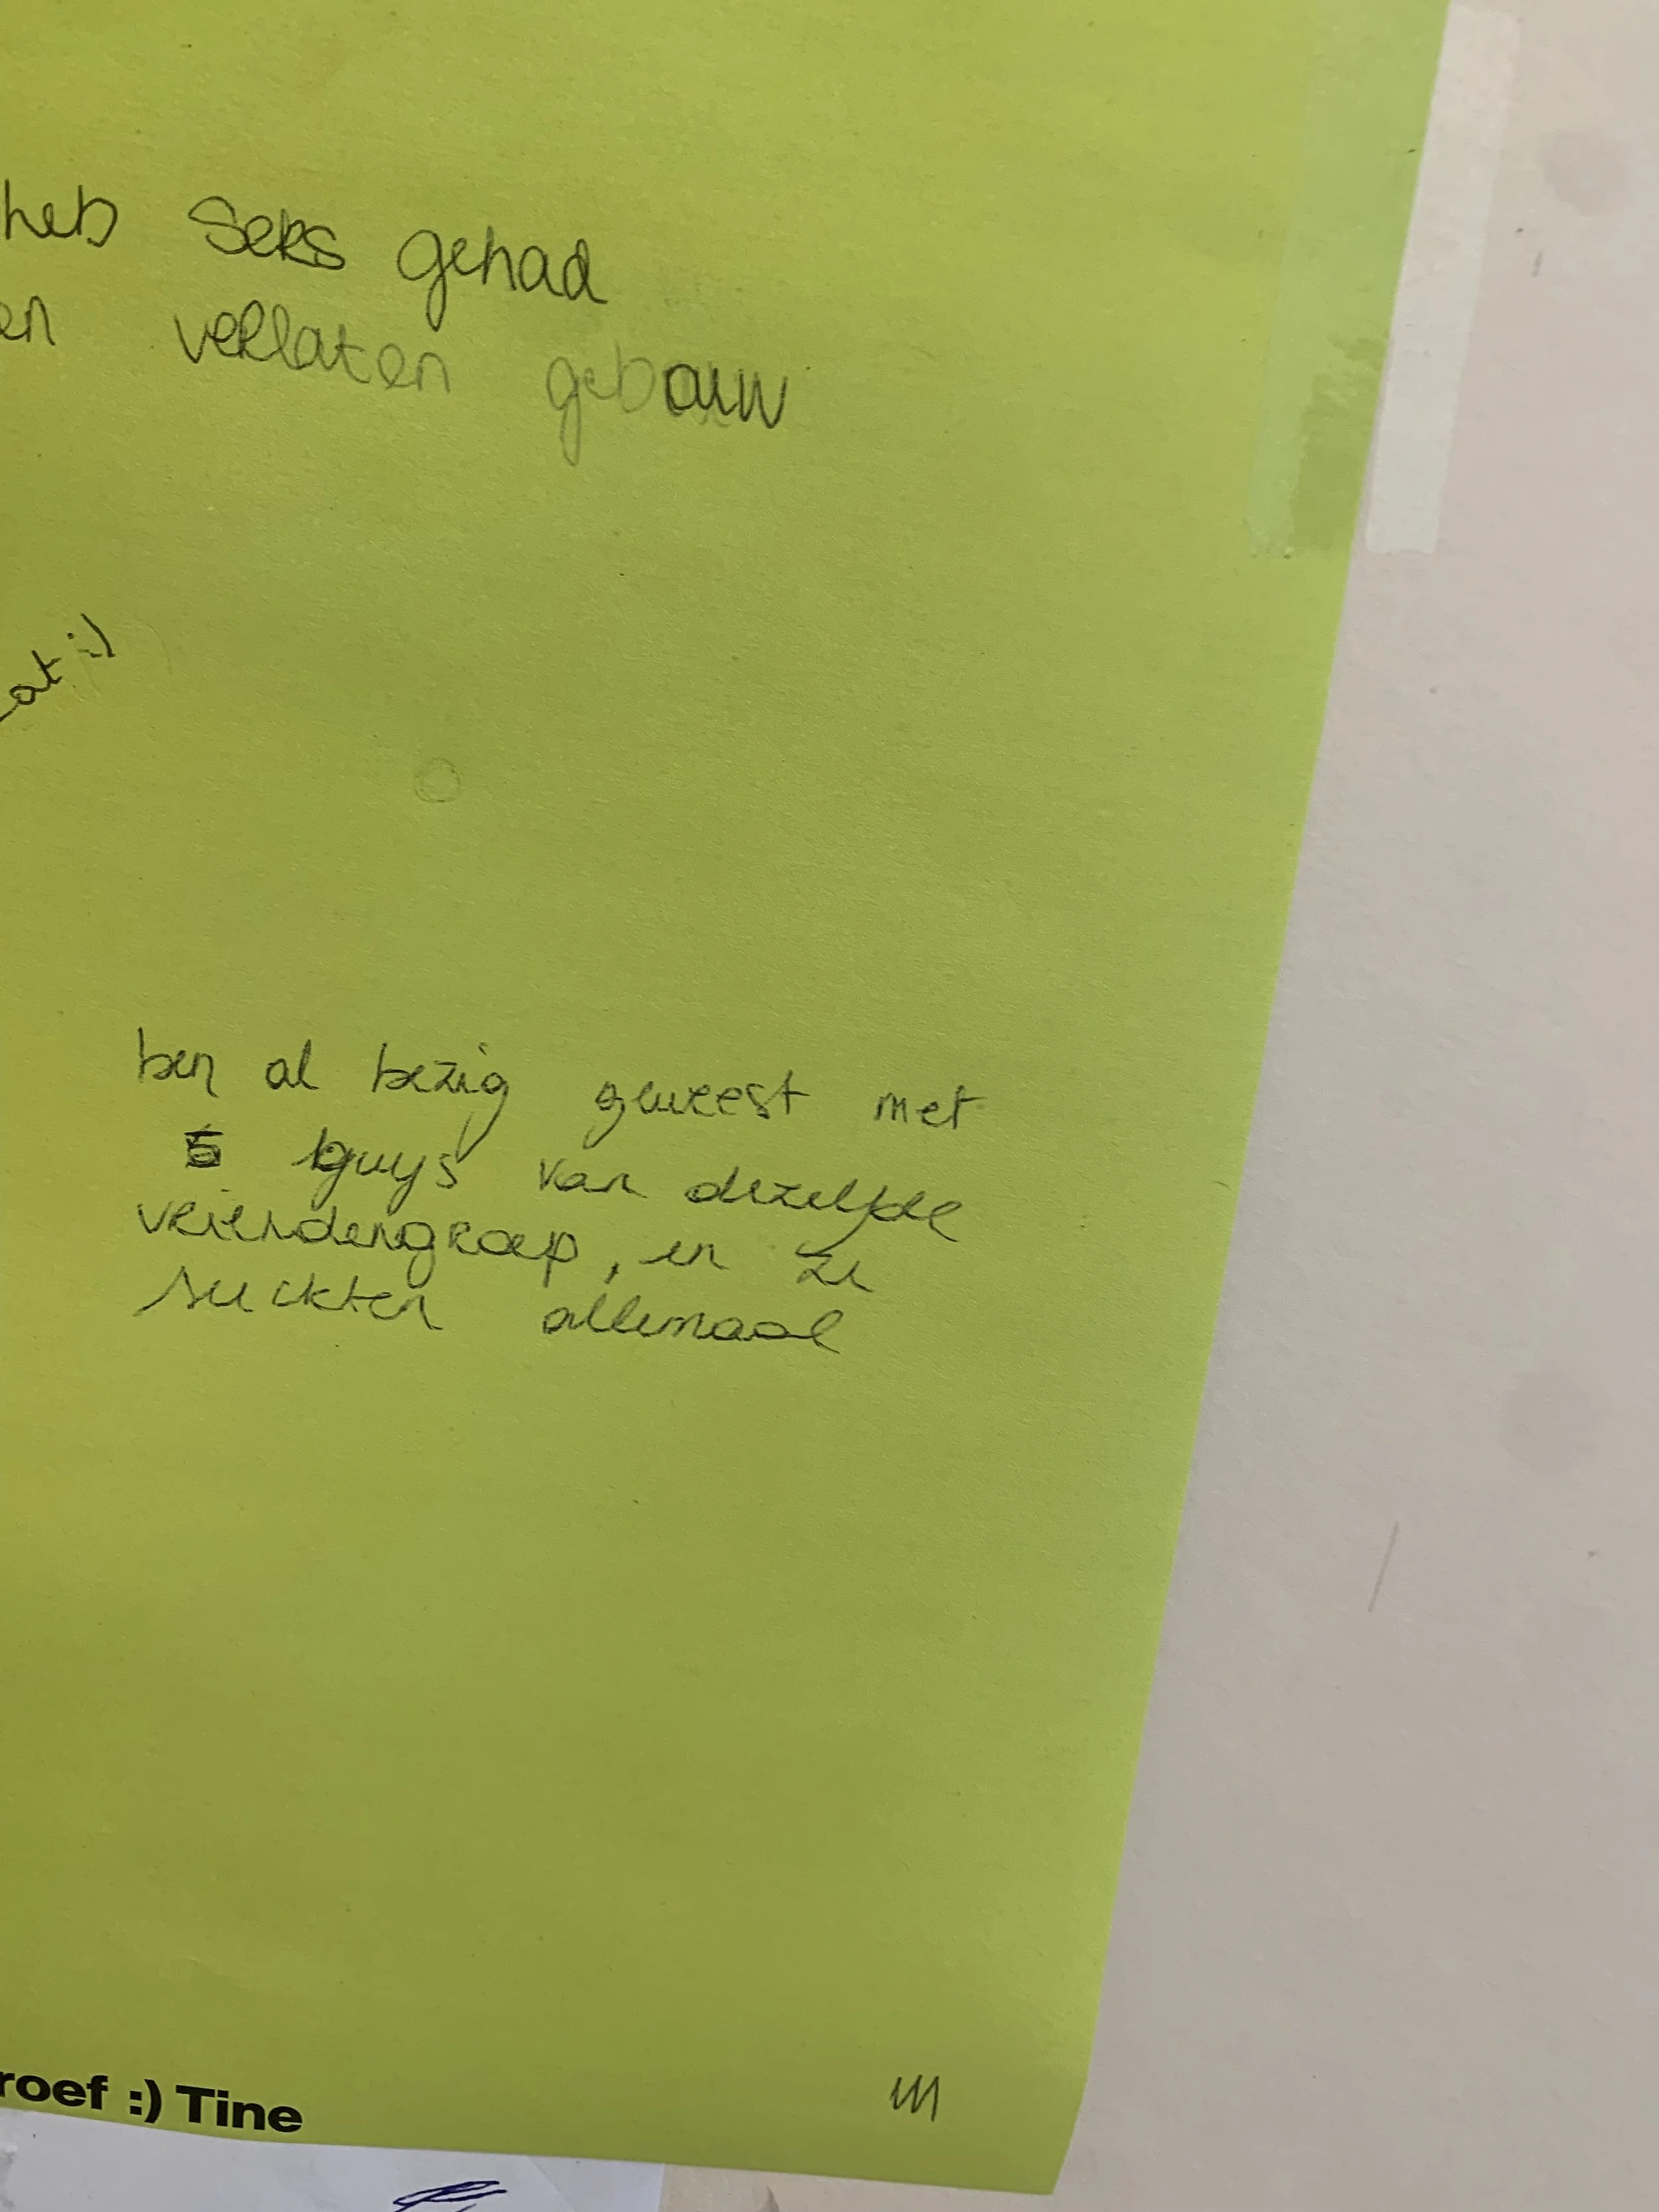 heb seks gehad
en verlaten gebouw
at :)
ben al bezig geweest met
5 guys van dezelfde
vriendengroep, en ze
suckten allemaal
roef :) Tine